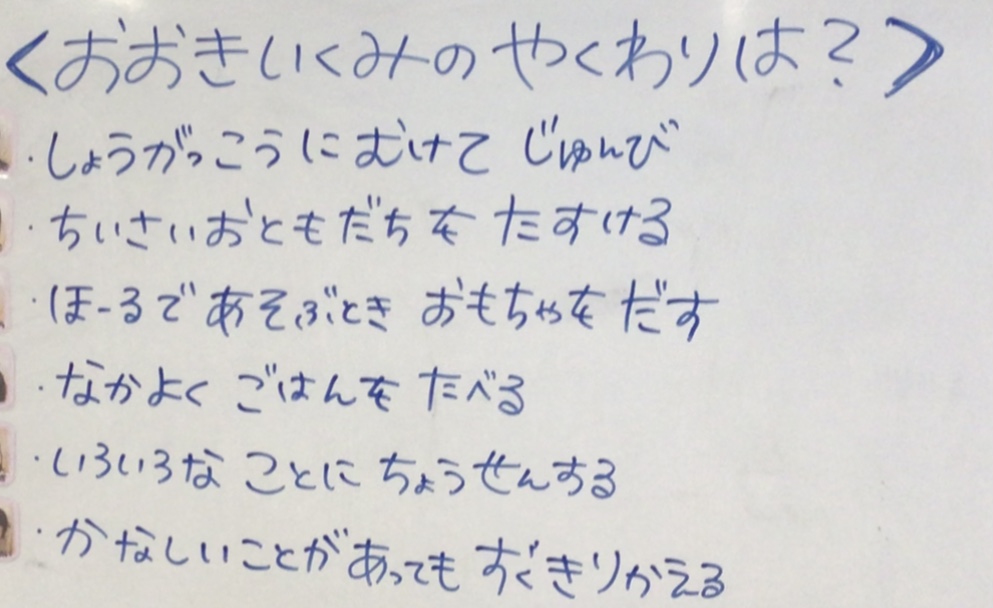 <おおきいくみの やくわりは?>
・しょうがっこうに むけて じゅんび
・ちいさいおともだちを たすける
・ほーるで あそぶとき おもちゃを だす
・なかよく ごはんを たべる
・いろいろな ことに ちょうせんする
・かなしいことが あっても すぐきりかえる